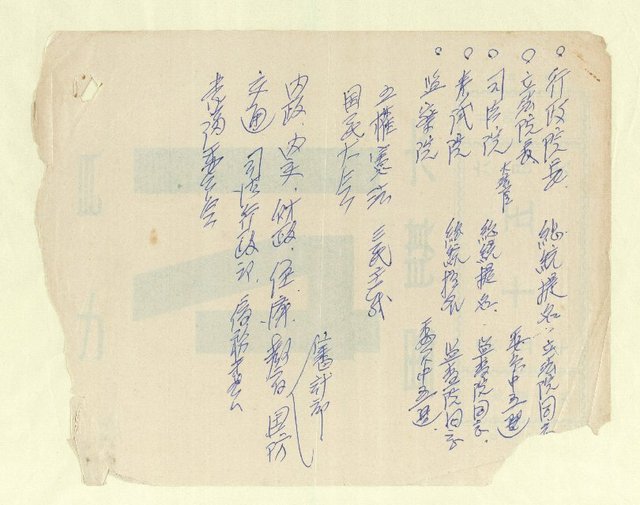 行政院長 總統提名 立法院同意
立法院長 委員中互選
司法院 大法官 總統提名 監察院同意
考試院 總統提名 監察院同意
監察院 委員中互選
五權憲法 三民主義
國民大會
審計部
內政、外交、財政、經濟、教育 國防
交通 司法行政部、僑務委會
蒙藏委員會